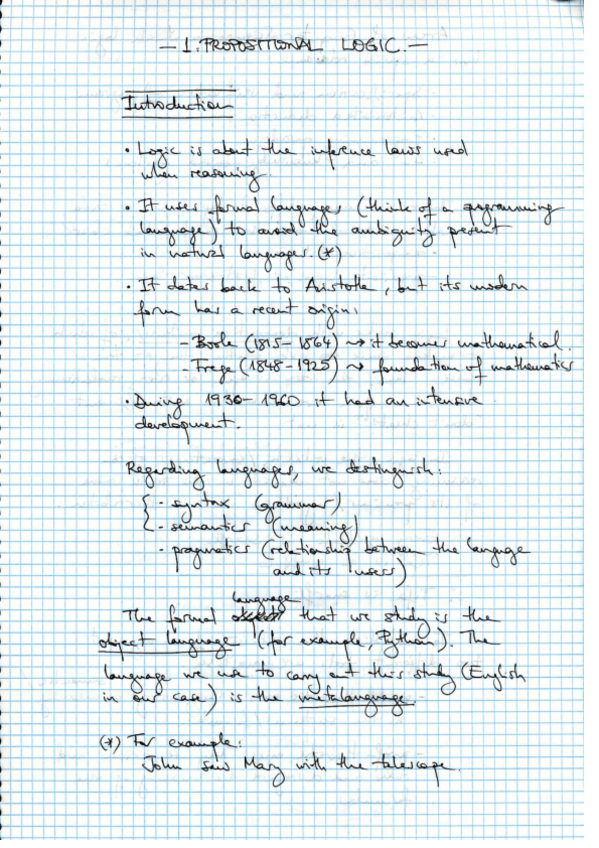 — 1. PROPOSITIONAL LOGIC. —
Introduction
· Logic is about the inference laws used
when reasoning.
· It uses formal languages (think of a programming
language) to avoid the ambiguity present
in natural languages. (*)
· It dates back to Aristotle, but its modern
form has a recent origin:
- Boole (1815-1864) ⇝ it becomes mathematical.
- Frege (1848-1925) ⇝ foundation of mathematics
· During 1930-1960 it had an intensive
development.
Regarding languages, we destinguish:
{ - syntax (grammar)
- semantics (meaning)
- pragmatics (relationship between the language
and its users)
language
The formal that we study is the
object language (for example, Python). The
language we use to carry out this study (English
in our case) is the metalanguage.
(*) For example:
John saw Mary with the telescope.